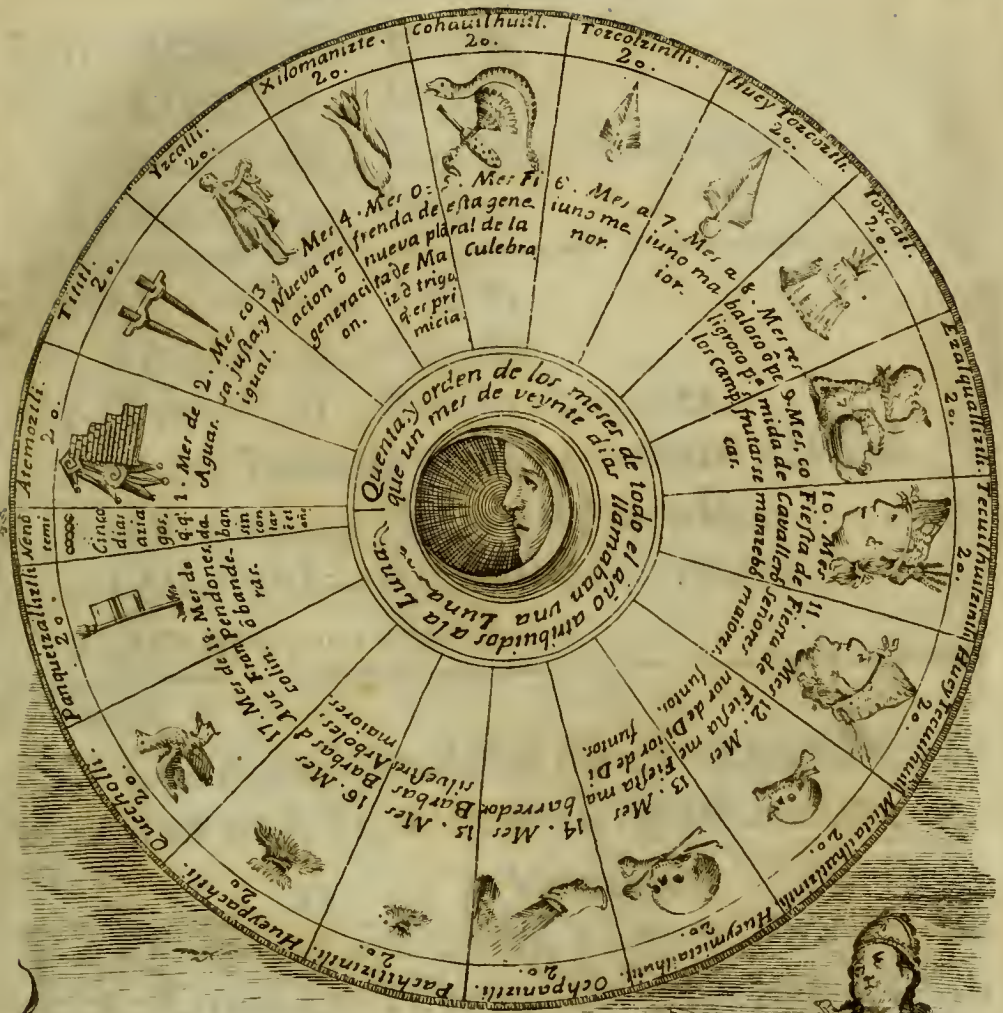 Quenta, y orden de los meses de todo el año atribuidos a la Luna
que un mes de veynte dias llamaban una Luna
Atemoztli.
20.
1. Mes de
Aguas.
Tititl.
20.
2. Mes co
sa justa, y
igual.
Yzcalli.
20.
3. Mes
Nueva cre
acion ô
generaci
on.
Xilomanizte.
20.
4. Mes O=
frenda de
nueva plã
ta de Ma
iz ð trigu
q es pri
micia
Cohauilhuitl.
20.
5. Mes Fi
esta gene
ral de la
Culebra
Tozcotzintli.
20.
6. Mes a
iuno me
nor.
Huey Tozcoztli.
20.
7. Mes a
iuno ma
ior.
Toxcatl.
20.
8. Mes res
baloso ô pe
ligroso p.ª
los Camp.ˢ
Ezalqualliztli.
20.
9. Mes, co
mida de
frutas se
cas.
Tecuilhuitzintli.
20.
10. Mes
Fiesta de
Cavallerõ
mancebõ
Huey Tecuilhuitl
20.
11. Mes
Fiesta de
señores
maiores.
Micailhuitzintli
20.
12. Mes
Fiesta me
nor de Di
funtos.
Hueymicailhuitl.
20.
13. Mes
Fiesta ma
ior de Di
funtos.
Ochpaniztli.
20.
14. Mes
barredor
Pachtlizintli.
20
15. Mes
Barbas
silvestres
Hueypachtli.
20
16. Mes
Barbas ð
Arboles
maiores.
Quecholli.
20.
17. Mes de
Ave Fran
colin.
Panquetzaliztli
20
18. Mes de
Pendones,
ô bande-
ras.
Neno
temi
Cinco
dias
azia
gos,
q. q.
da
ban
sin
con
tar
ẽ el
año